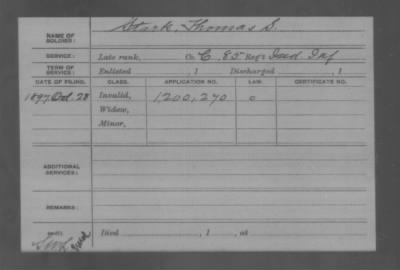 NAME OF SOLDIER: Stark, Thomas S.
SERVICE: Late rank, Co. C, 85 Reg't Ind Inf
TERM OF SERVICE: Enlisted , 1 Discharged , 1
DATE OF FILING. CLASS. APPLICATION NO. LAW. CERTIFICATE NO.
1897, Oct. 28 Invalid, 1,200,270
Widow,
Minor,
ADDITIONAL SERVICES:
REMARKS:
Died , 1 , at